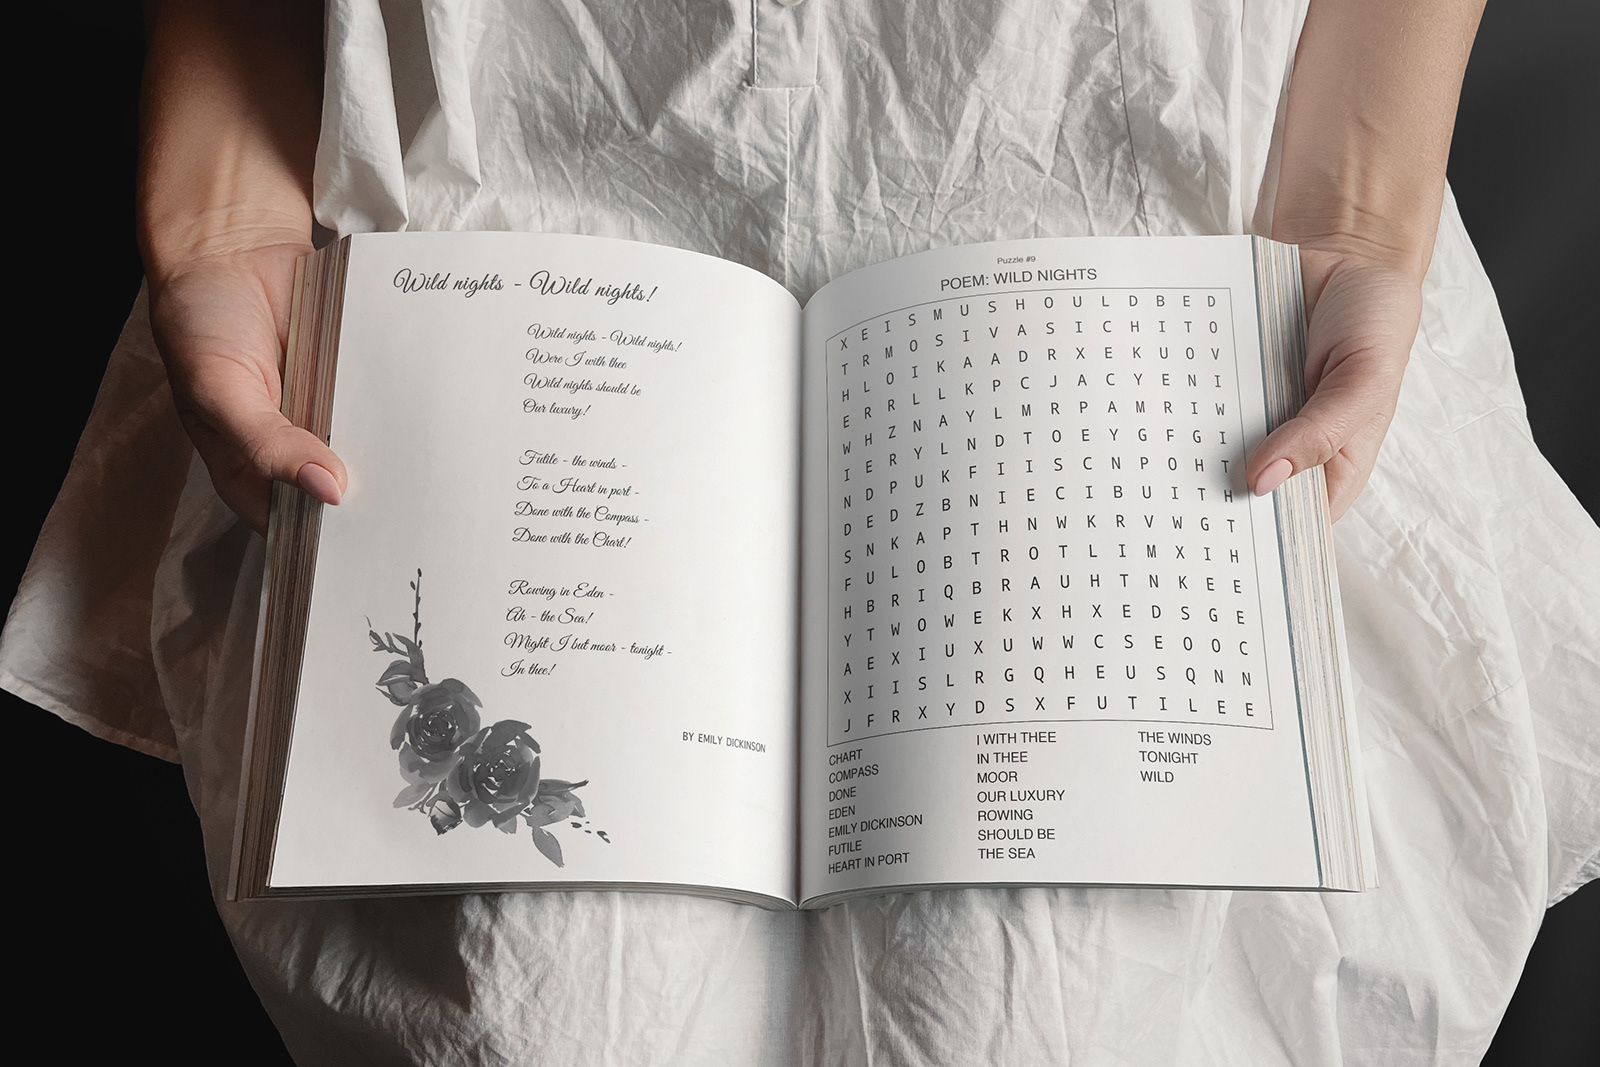 Wild nights - Wild nights!
Wild nights - Wild nights!
Were I with thee
Wild nights should be
Our luxury!
Futile - the winds -
To a Heart in port -
Done with the Compass -
Done with the Chart!
Rowing in Eden -
Ah - the Sea!
Might I but moor - tonight -
In thee!
BY EMILY DICKINSON
Puzzle #9
POEM: WILD NIGHTS
X E I S M U S H O U L D B E D
T R M O S I V A S I C H I T O
H L O I K A A D R X E K U O V
E R R L L K P C J A C Y E N I
W H Z N A Y L M R P A M R I W
I E R Y L N D T O E Y G F G I
N D P U K F I I S C N P O H T
D E D Z B N I E C I B U I T H
S N K A P T H N W K R V W G T
F U L O B T R O T L I M X I H
H B R I Q B R A U H T N K E E
Y T W O W E K X H X E D S G E
A E X I U X U W W C S E O O C
X I I S L R G Q H E U S Q N N
J F R X Y D S X F U T I L E E
CHART
COMPASS
DONE
EDEN
EMILY DICKINSON
FUTILE
HEART IN PORT
I WITH THEE
IN THEE
MOOR
OUR LUXURY
ROWING
SHOULD BE
THE SEA
THE WINDS
TONIGHT
WILD